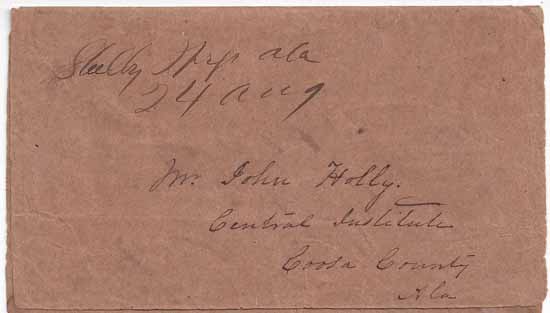 Shelby Sprgs ala
24 aug
Mr. John Holly.
Central Institute
Coosa County
Ala